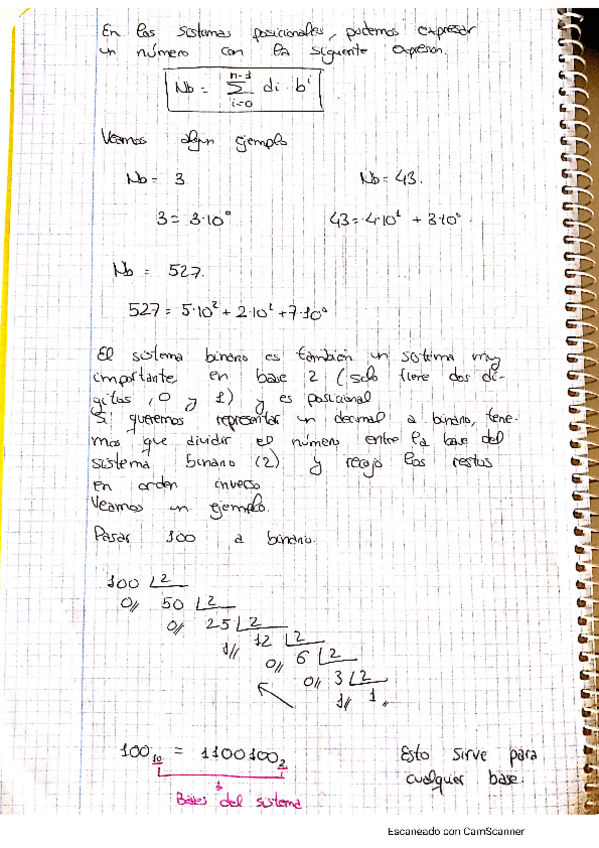 En los sistemas posicionales, podemos expresar
un número con la siguiente expresión.
n-1
Nb = Σ di · b^i
i=0
Veamos algun ejemplo
Nb = 3 Nb = 43.
3 = 3·10^0 43 = 4·10^1 + 3·10^0
Nb = 527.
527 = 5·10^2 + 2·10^1 + 7·10^0
El sistema binario es también un sistema muy
importante en base 2 (solo tiene dos dí-
gitos, 0 y 1) y es posicional
Si queremos representar un decimal a binario, tene-
mos que dividir el número entre la base del
sistema binario (2) y recojo los restos
en orden inverso
Veamos un ejemplo.
Pasar 100 a binario.
100 | 2
0// 50 | 2
0// 25 | 2
1// 12 | 2
0// 6 | 2
0// 3 | 2
1// 1,,
100₁₀ = 1100100₂ Esto sirve para
cualquier base.
Bases del sistema
Escaneado con CamScanner